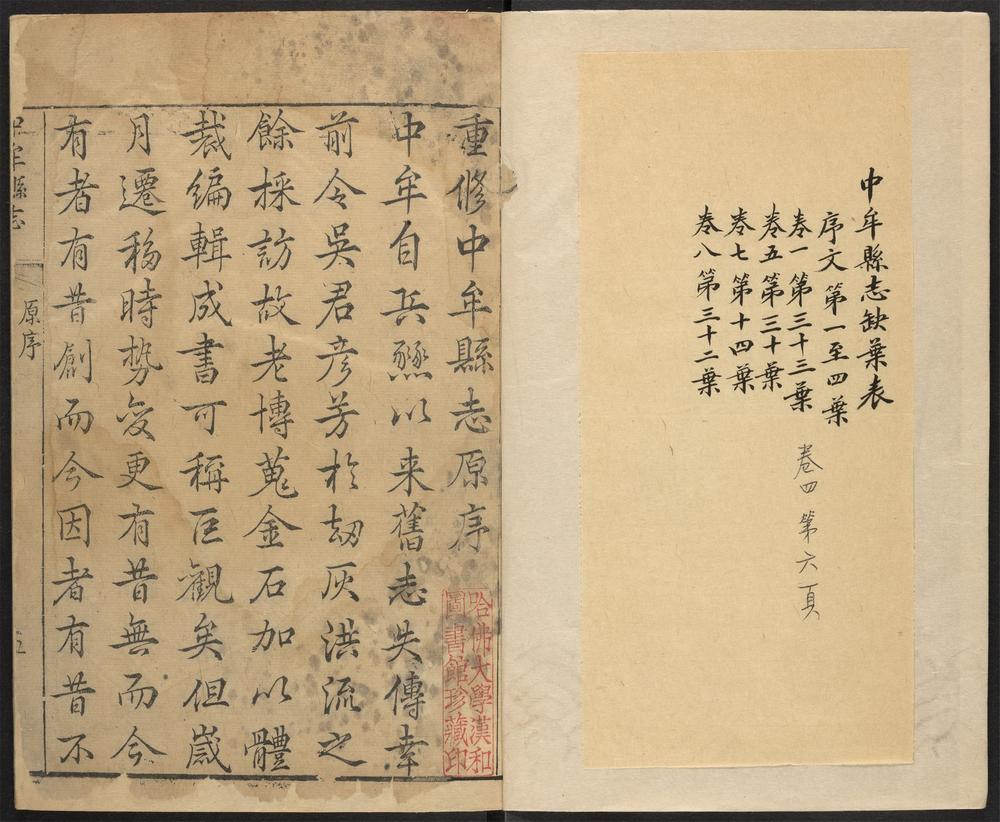 中牟縣志缺葉表
序文第一至四葉
卷一第三十三葉
卷五第三十葉
卷七第十四葉
卷八第三十二葉
卷四第六頁
重修中牟縣志原序
中牟自兵燹以来舊志失傳幸
前令吳君彦芳於刧灰洪流之
餘採訪故老博蒐金石加以體
裁編輯成書可稱巨觀矣但歲
月遷移時勢变更有昔無而今
有者有昔創而今因者有昔不
哈佛大學漢和
圖書館珍藏印
中牟縣志
原序
五